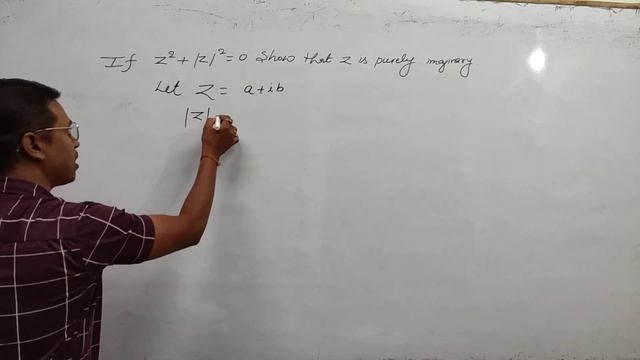 If z² + |z|² = 0 Show that z is purely imginary
Let z = a + ib
|z|